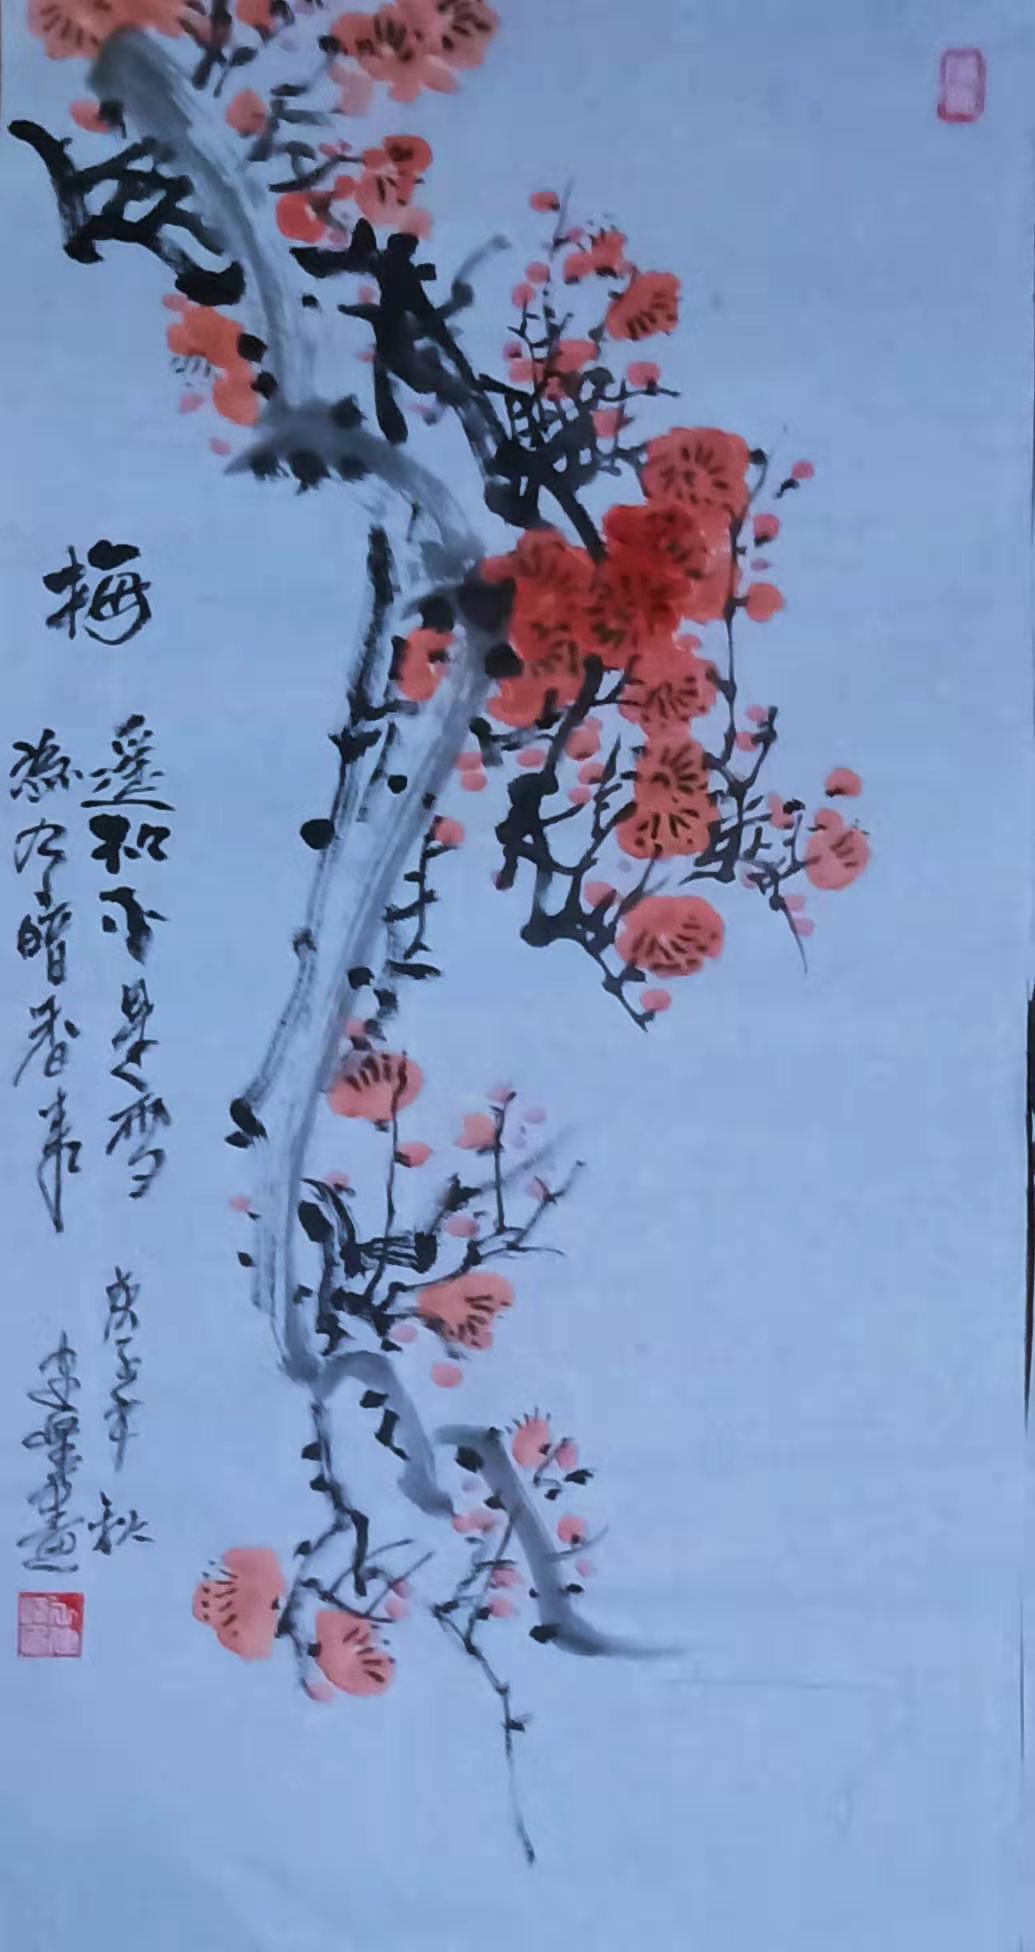 梅
遥知不是雪
為有暗香来
庚子年秋
畫